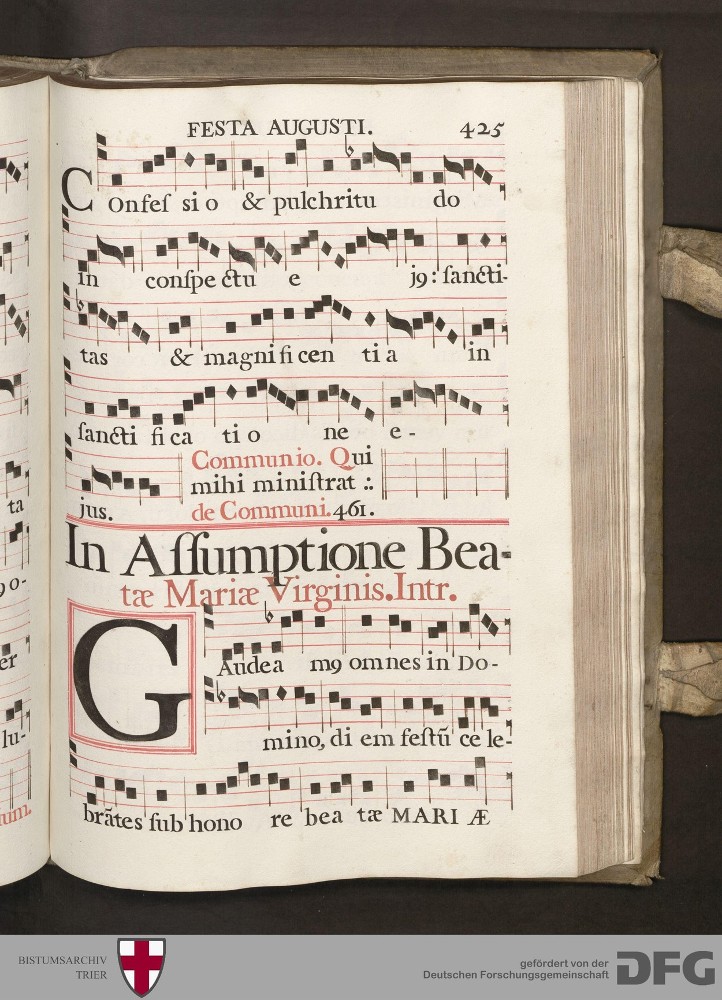 FESTA AUGUSTI. 425
Confeſ si o & pulchritu do
in conſpe ctu e j9: ſancti-
tas & magnifi cen ti a in
ſancti fi ca ti o ne e-
jus. Communio. Qui
mihi miniſtrat :.
de Communi. 461.
In Aſſumptione Bea-
tæ Mariæ Virginis. Intr.
GAudea m9 omnes in Do-
mino, di em feſtū ce le-
brātes ſub hono re bea tæ MARI Æ
ta
9 o-
er
lu-
um.
BISTUMSARCHIV
TRIER
gefördert von der
Deutschen Forschungsgemeinschaft
DFG